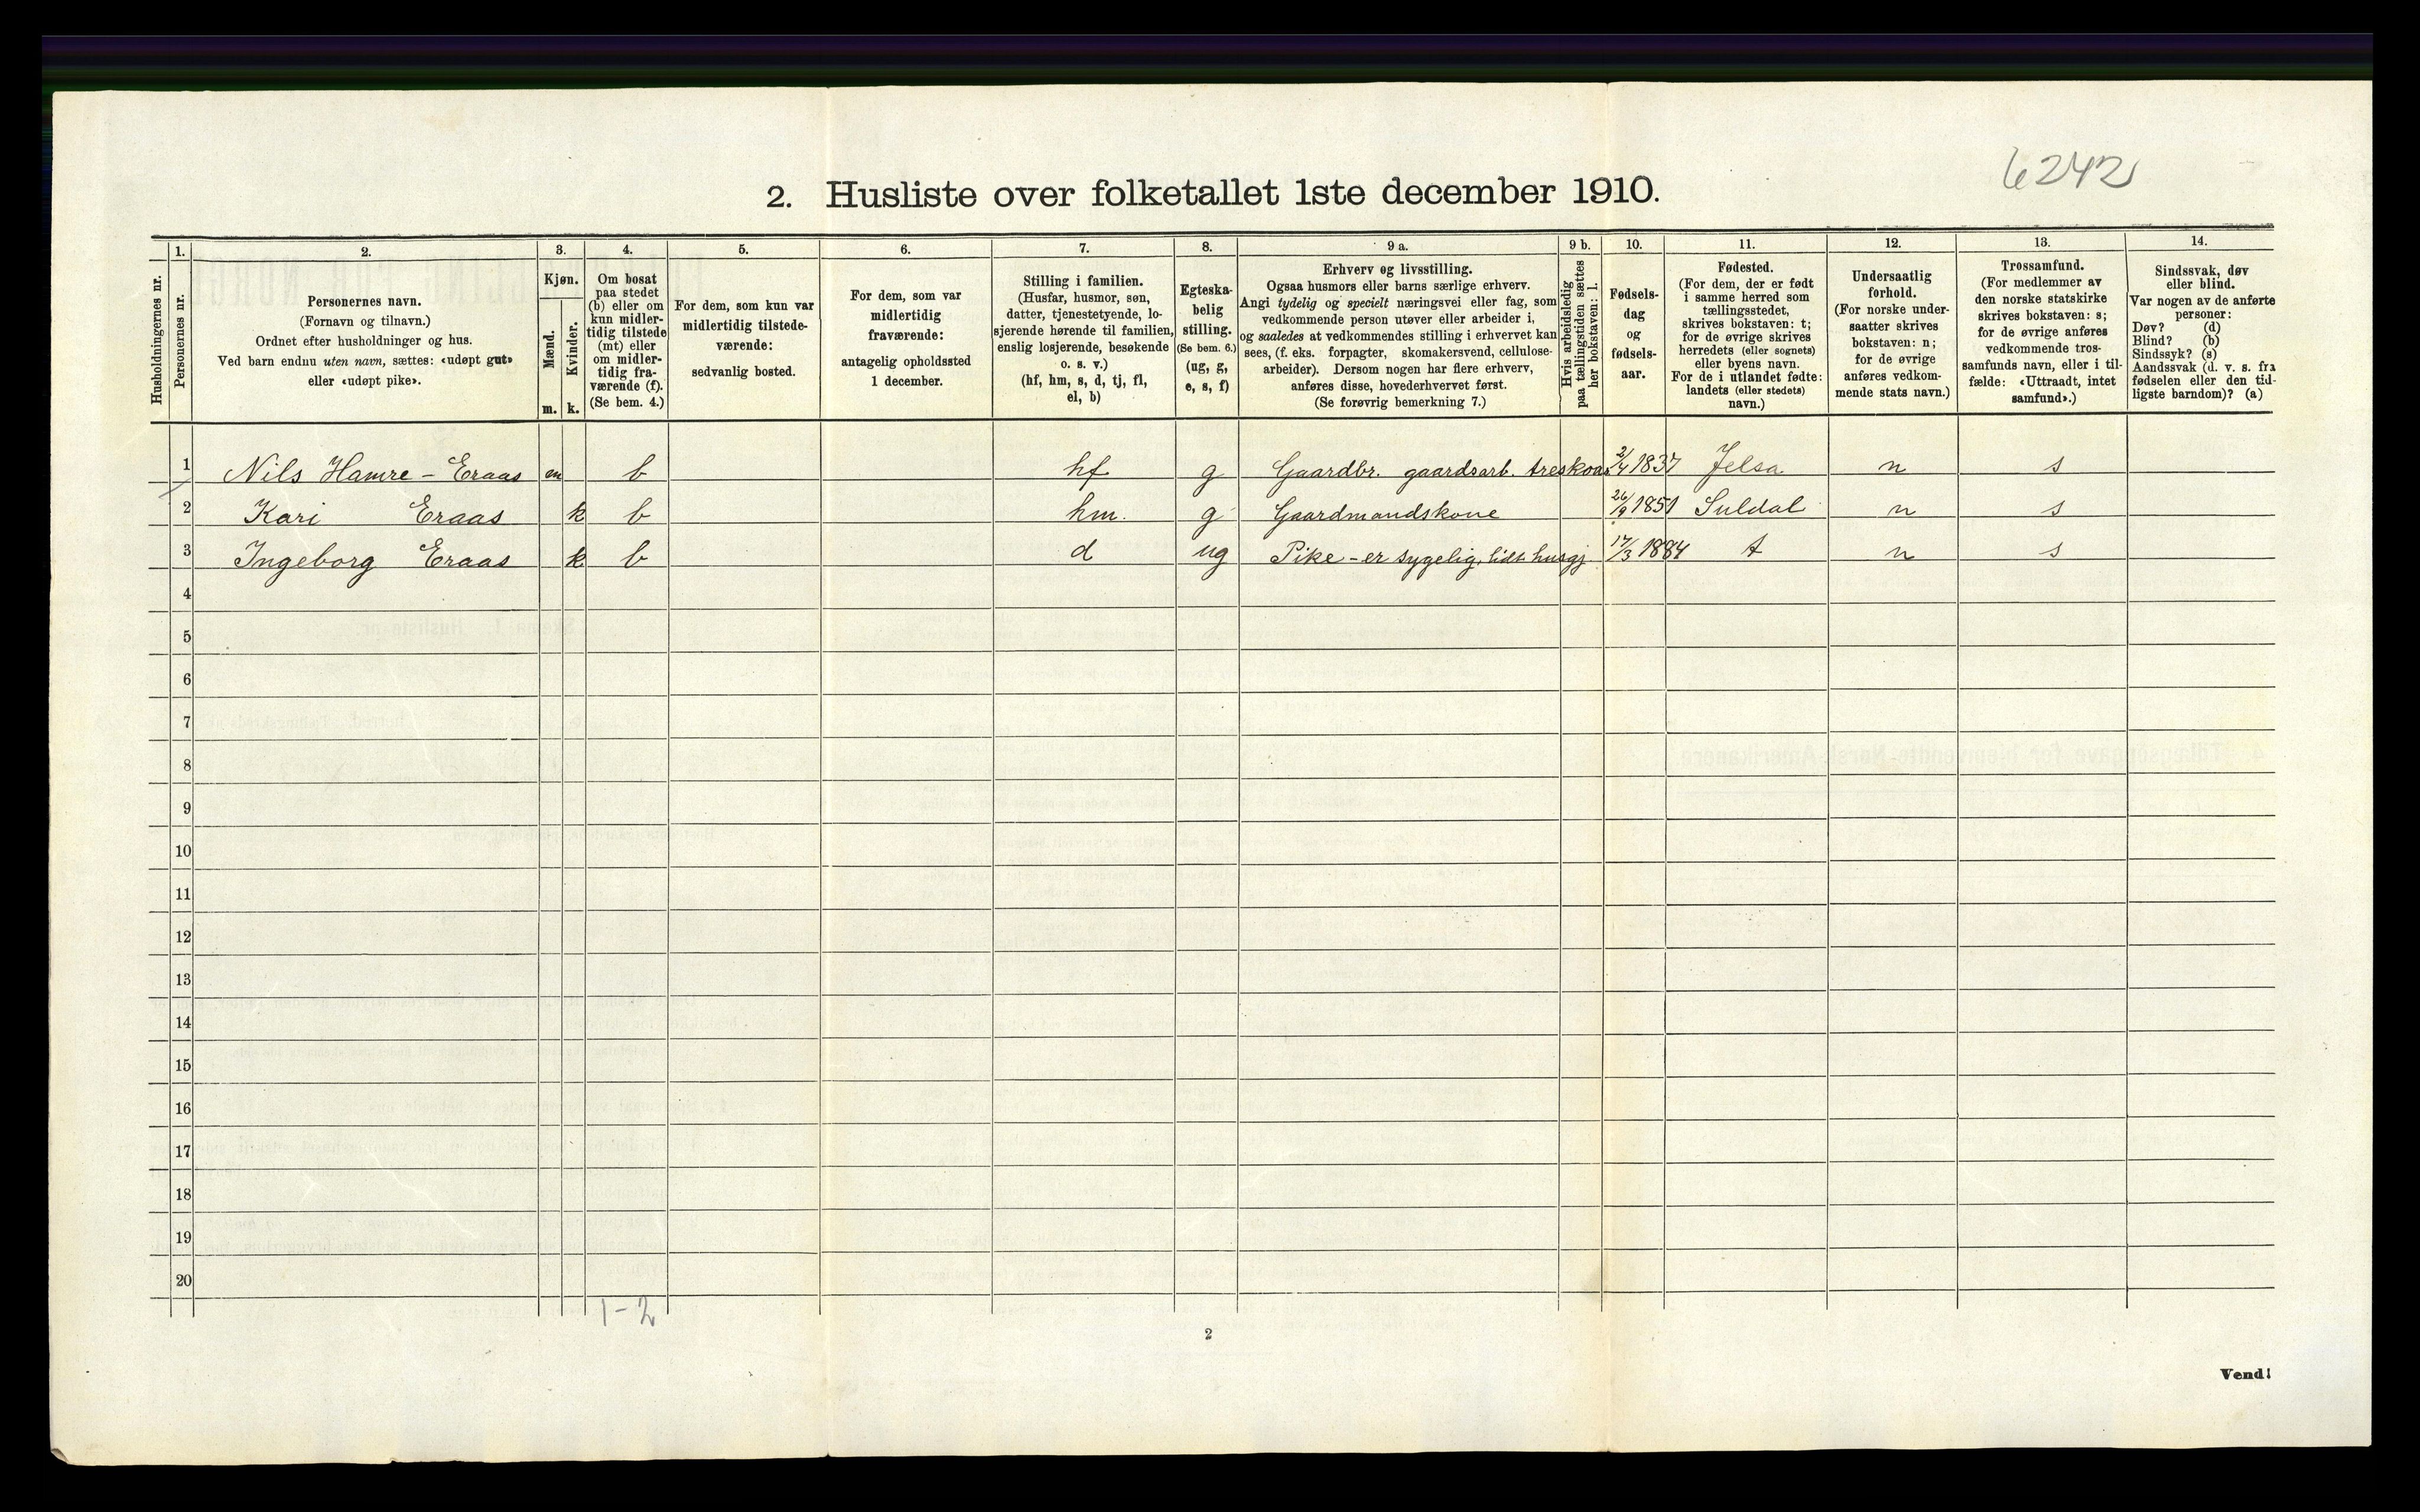 6242
2. Husliste over folketallet 1ste december 1910.
Husholdningernes nr.
1.
Personernes nr.
2.
Personernes navn.
(Fornavn og tilnavn.)
Ordnet efter husholdninger og hus.
Ved barn endnu uten navn, sættes: «udøpt gut»
eller «udøpt pike».
3.
Kjøn.
Mænd.
Kvinder.
m. k.
4.
Om bosat
paa stedet
(b) eller om
kun midler-
tidig tilstede
(mt) eller
om midler-
tidig fra-
værende (f).
(Se bem. 4.)
5.
For dem, som kun var
midlertidig tilstede-
værende:
sedvanlig bosted.
6.
For dem, som var
midlertidig
fraværende:
antagelig opholdssted
1 december.
7.
Stilling i familien.
(Husfar, husmor, søn,
datter, tjenestetyende, lo-
sjerende hørende til familien,
enslig losjerende, besøkende
o. s. v.)
(hf, hm, s, d, tj, fl,
el, b)
8.
Egteska-
belig
stilling.
(Se bem. 6.)
(ug, g,
e, s, f)
9 a.
Erhverv og livsstilling.
Ogsaa husmors eller barns særlige erhverv.
Angi tydelig og specielt næringsvei eller fag, som
vedkommende person utøver eller arbeider i,
og saaledes at vedkommendes stilling i erhvervet kan
sees, (f. eks. forpagter, skomakersvend, cellulose-
arbeider). Dersom nogen har flere erhverv,
anføres disse, hovederhvervet først.
(Se forøvrig bemerkning 7.)
9 b.
Hvis arbeidsledig
paa tællingstiden sættes
her bokstaven: l.
10.
Fødsels-
dag
og
fødsels-
aar.
11.
Fødested.
(For dem, der er født
i samme herred som
tællingsstedet,
skrives bokstaven: t;
for de øvrige skrives
herredets (eller sognets)
eller byens navn.
For de i utlandet fødte:
landets (eller stedets)
navn.)
12.
Undersaatlig
forhold.
(For norske under-
saatter skrives
bokstaven: n;
for de øvrige
anføres vedkom-
mende stats navn.)
13.
Trossamfund.
(For medlemmer av
den norske statskirke
skrives bokstaven: s;
for de øvrige anføres
vedkommende tros-
samfunds navn, eller i til-
fælde: «Uttraadt, intet
samfund».)
14.
Sindssvak, døv
eller blind.
Var nogen av de anførte
personer:
Døv? (d)
Blind? (b)
Sindssyk? (s)
Aandssvak (d. v. s. fra
fødselen eller den tid-
ligste barndom)? (a)
1 Nils Hamre - Eraas m b hf g Gaardbr. gaardsarb. 2/4 1837 Jelsa n s
2 Kari Eraas k b hm. g Gaardmandskone 26/9 1851 Suldal n s
3 Ingeborg Eraas k b d ug Pike - er sygelig, lidt husgj. 17/3 1884 t n s
4
5
6
7
8
9
10
11
12
13
14
15
16
17
18
19
20
1-2
2
Vend!